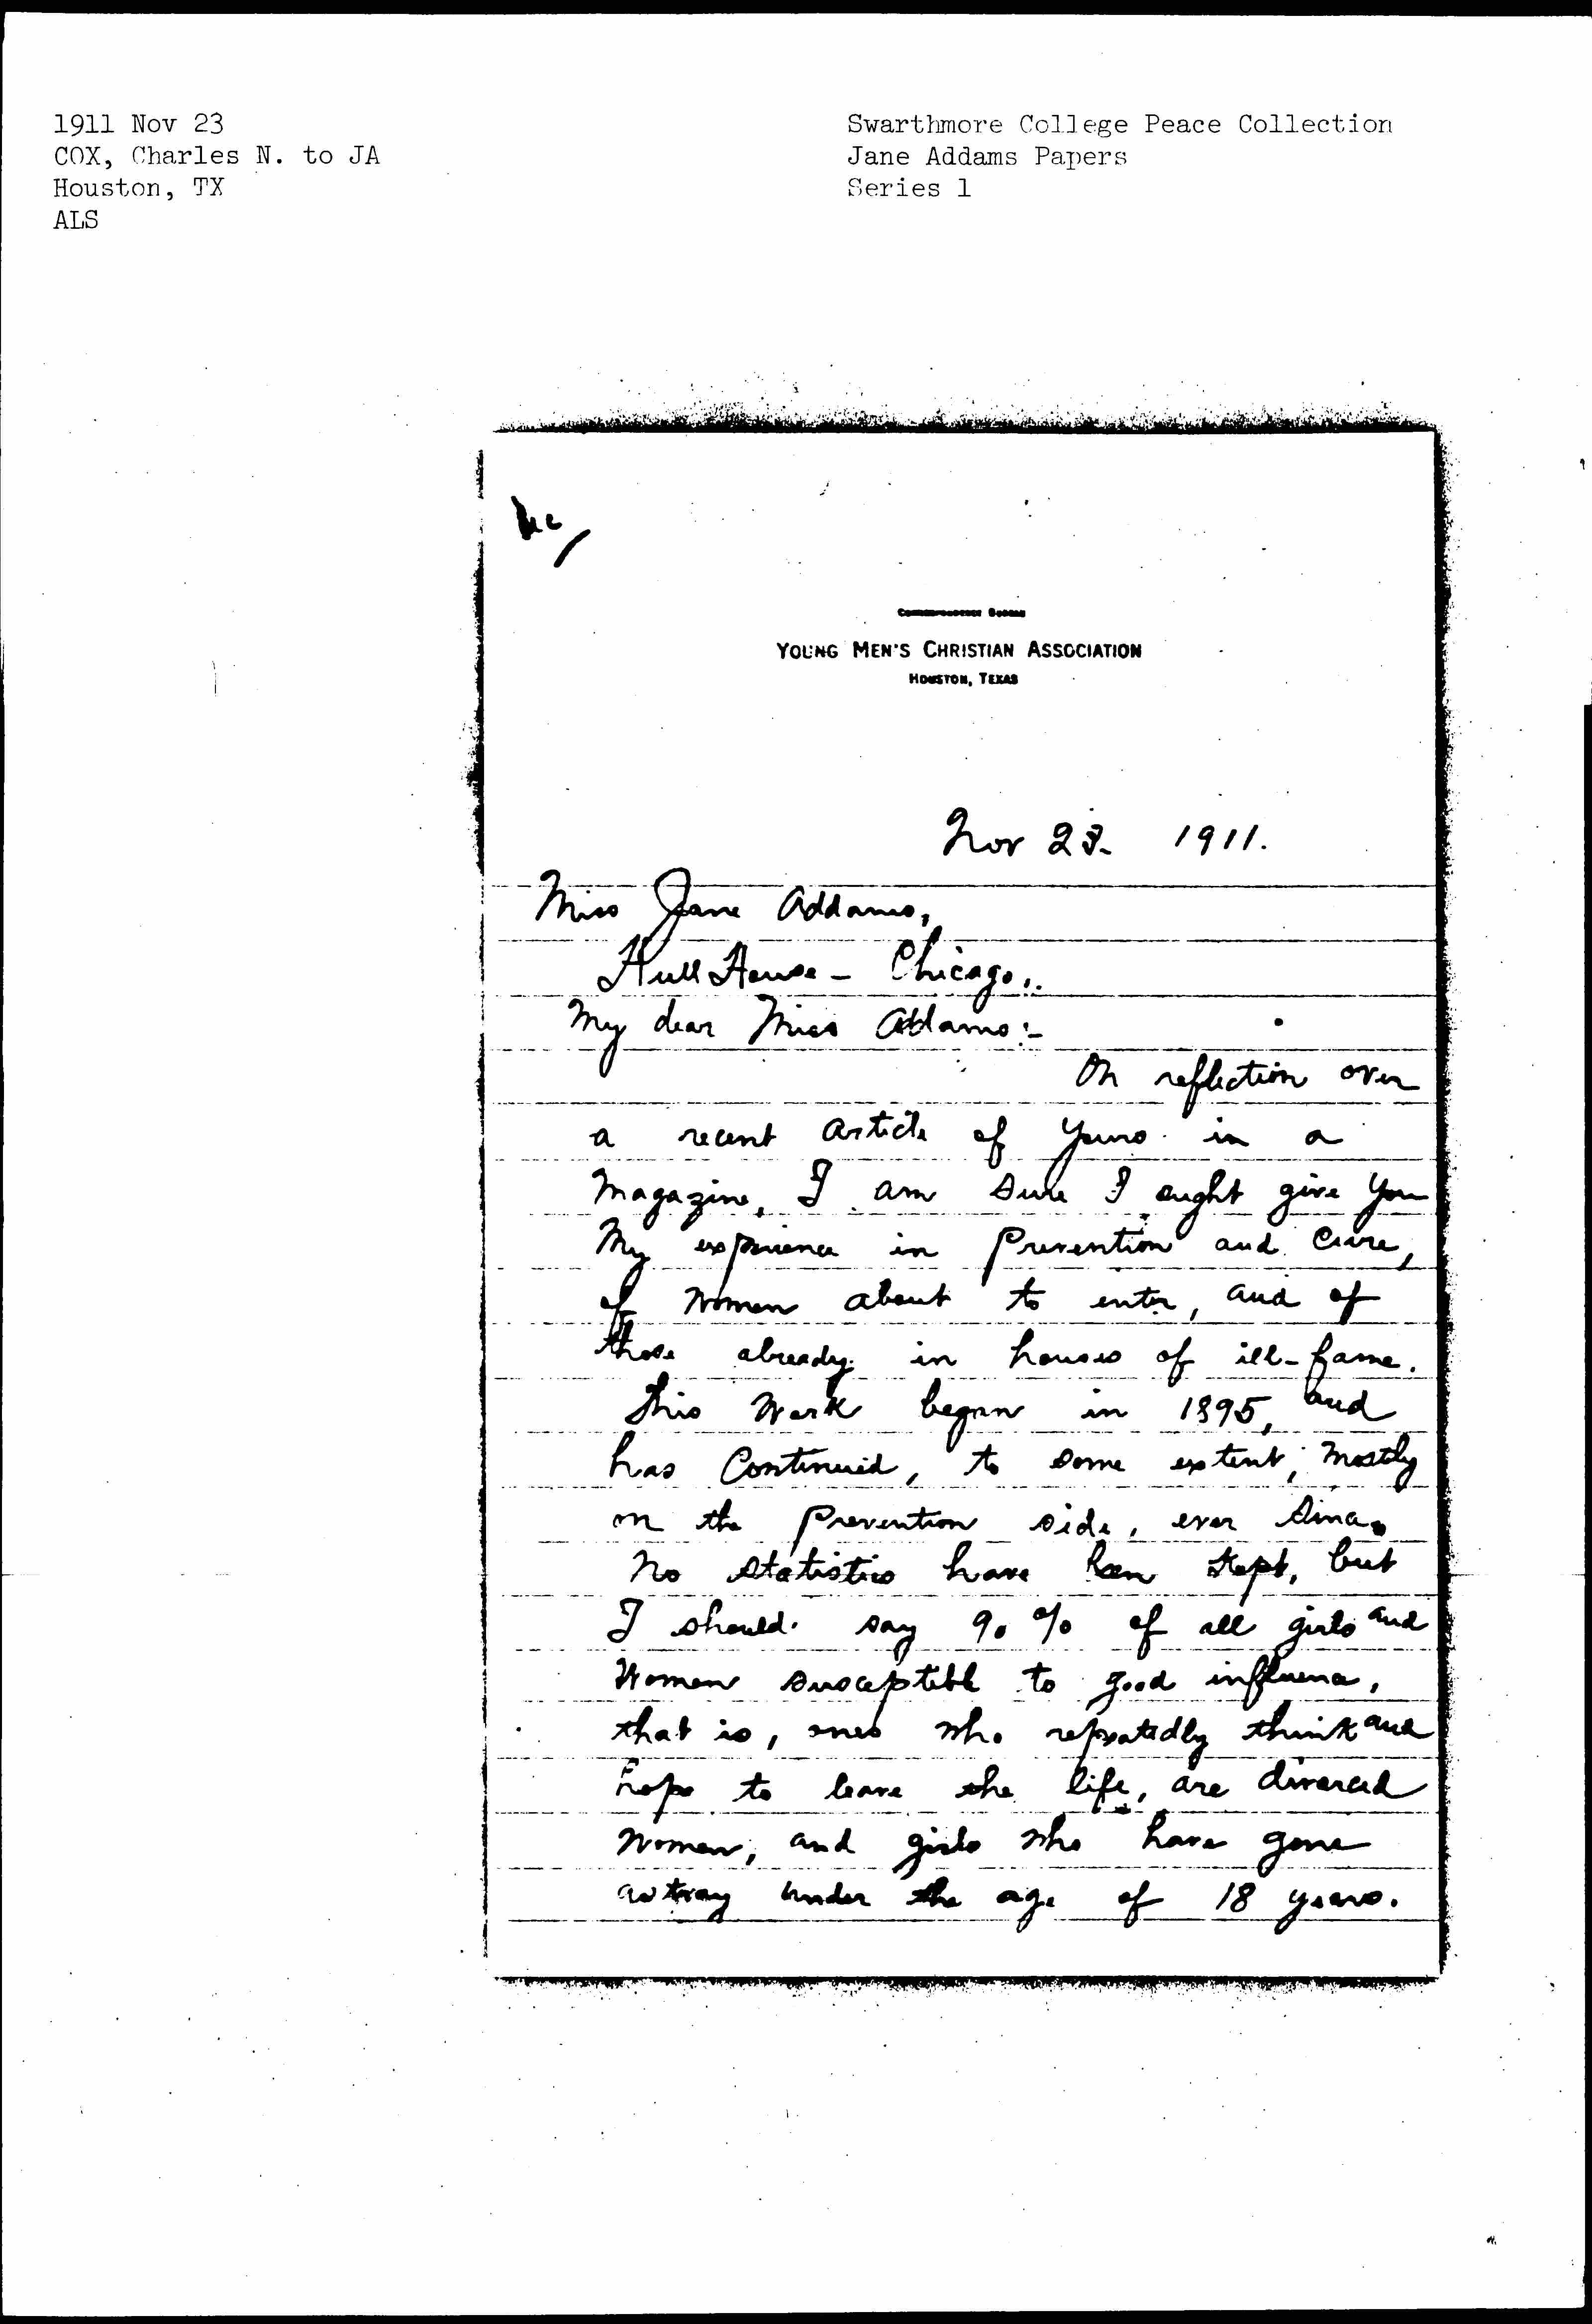 1911 Nov 23
COX, Charles N. to JA
Houston, TX
ALS
Swarthmore College Peace Collection
Jane Addams Papers
Series 1
Correspondence Bureau
YOUNG MEN'S CHRISTIAN ASSOCIATION
HOUSTON, TEXAS
Nov 23. 1911.
Miss Jane Addams,
Hull House - Chicago.
My dear Miss Addams:-
On reflection over
a recent article of yours in a
magazine, I am sure I ought give you
My experience in Prevention and Cure,
of women about to enter, and of
those already in houses of ill-fame.
This Work began in 1895, and
has Continued, to some extent, mostly
on the Prevention side, ever since.
No statistics have been kept, but
I should say 90 % of all girls and
Women susceptible to good influence,
that is, ones who repeatedly think and
hope to leave the life, are divorced
women, and girls who have gone
astray under the age of 18 years.